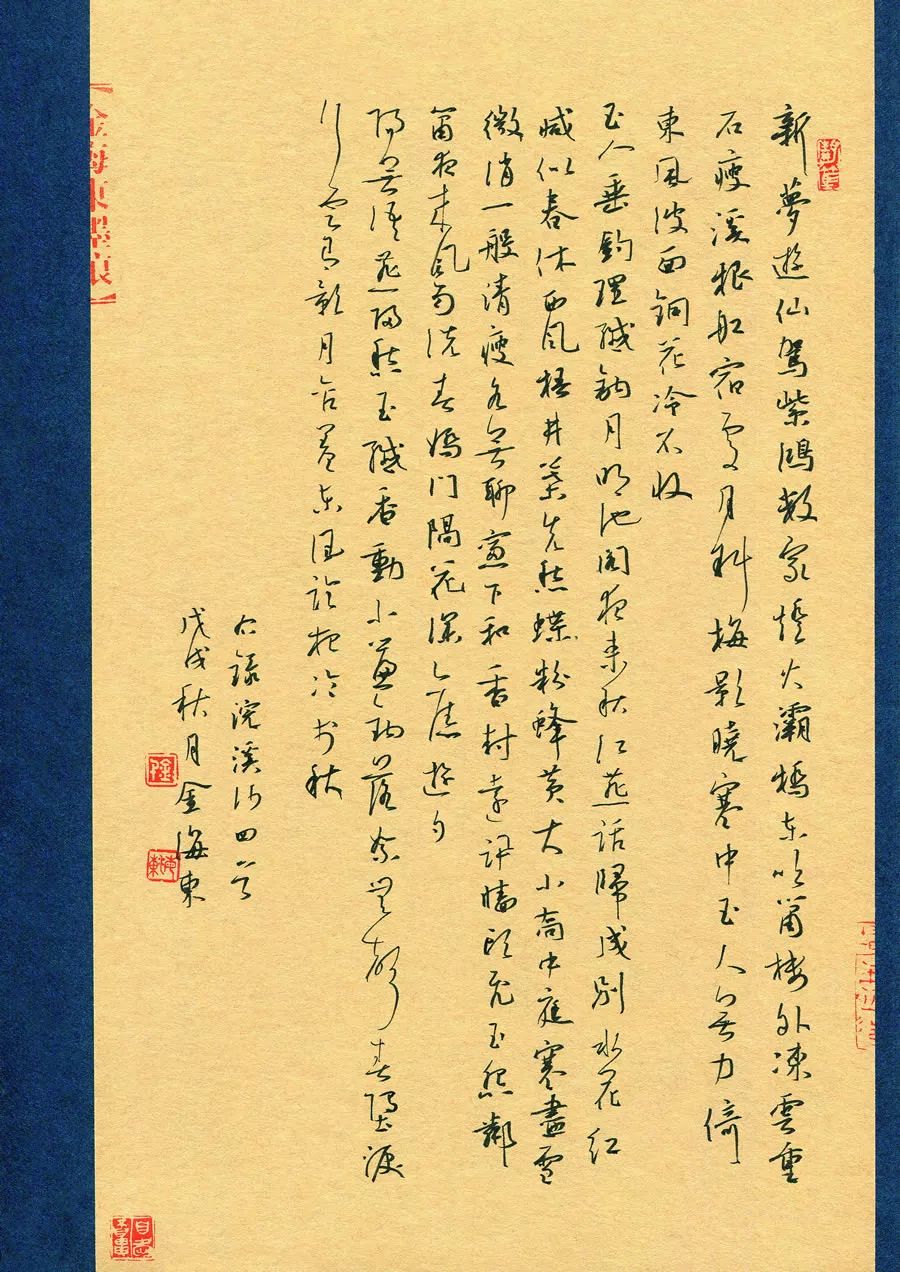 新夢遊仙駕紫鴻數家燈火灞橋東吹簫樓外凍雲重
石瘦溪根船宿處月斜梅影曉寒中玉人無力倚
東風波面銅花冷不收
玉人垂釣理纖鉤月明池閣夜來秋江燕話歸成別水花紅
減似春休西風梧井葉先愁蝶粉蜂黃大小喬中庭寒盡雪
微消一般清瘦各無聊窗下和香封遠訊牆頭飛玉怨鄰
簫夜來風雨洗春嬌門隔花深夢舊遊夕
陽無語燕歸愁玉纖香動小簾鉤落絮無聲春墮淚
行雲有影月含羞東風臨夜冷於秋
右錄浣溪沙四首
戊戌秋月金海東
金海東墨痕